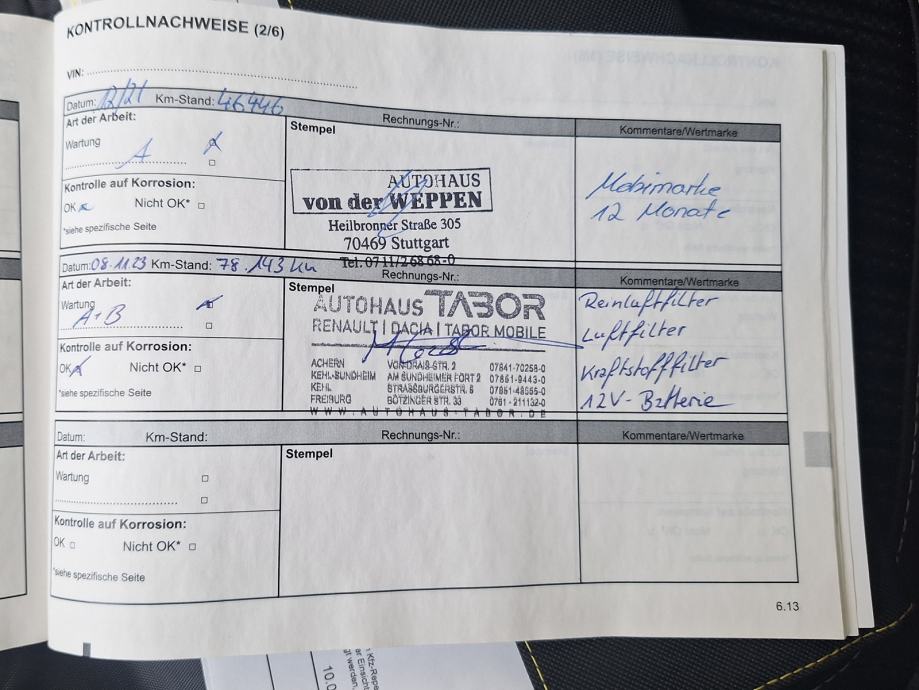 KONTROLLNACHWEISE (2/6)
VIN:
Datum: 12/21 Km-Stand: 46446
Rechnungs-Nr.:
Kommentare/Wertmarke
Art der Arbeit:
Wartung
A
Stempel
AUTOHAUS
von der WEPPEN
Heilbronner Straße 305
70469 Stuttgart
Tel. 0711/2 68 68-0
Mobimarke
12 Monate
Kontrolle auf Korrosion:
OK Nicht OK*
*siehe spezifische Seite
Datum: 08.11.23 Km-Stand: 78.143 km
Rechnungs-Nr.:
Kommentare/Wertmarke
Art der Arbeit:
Wartung
A+B
Stempel
AUTOHAUS TABOR
RENAULT | DACIA | TABOR MOBILE
ACHERN VON-DRAIS-STR. 2 07841-70258-0
KEHL-SUNDHEIM AM SUNDHEIMER FORT 2 07851-9443-0
KEHL STRASSBURGERSTR. 6 07851-48555-0
FREIBURG BÖTZINGER STR. 33 0761-211132-0
WWW.AUTOHAUS-TABOR.DE
Reinluftfilter
Luftfilter
Kraftstofffilter
12V-Batterie
Kontrolle auf Korrosion:
OK Nicht OK*
*siehe spezifische Seite
Datum: Km-Stand:
Rechnungs-Nr.:
Kommentare/Wertmarke
Art der Arbeit:
Wartung
Stempel
Kontrolle auf Korrosion:
OK Nicht OK*
*siehe spezifische Seite
6.13